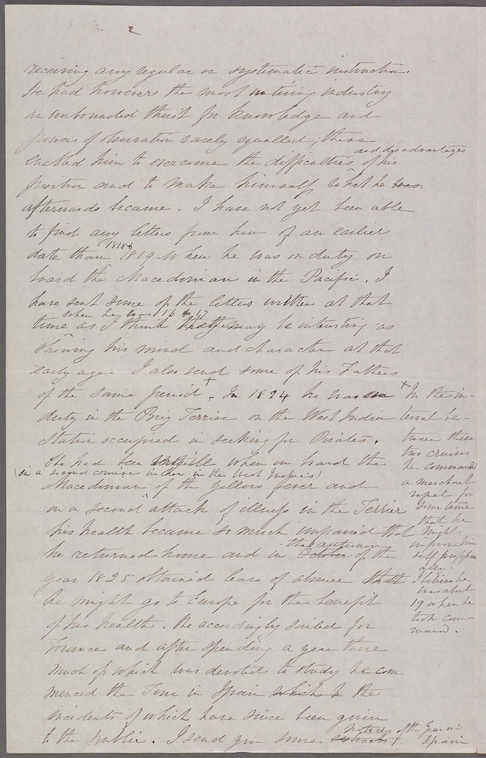 2
receiving any regular or systematic instruction.
He had however the most untiring industry
an unbounded thirst for knowledge and
powers of observation rarely equalled; these
and disadvantages
enabled him to overcome the difficulties of his
position and to make himself what he was
afterwards became. I have not yet been able
to find any letters from him of an earlier
date than 1819 when he was on duty on
board the Macedonian in the Pacific. I
have sent some of the letters written at that
when he was 16 & 17
time as I think they may be interesting as
showing his mind and character at that
early age. I also send some of his Father's
of the same period. + In 1824 he was on
duty in the Brig Terrier on the West India
station occupied in seeking for Pirates.
He had been ill when on board the
(in a former cruise in her in the West Indies)
Macedonian of the yellow fever and
on a second attack of illness in the Terrier
his health became so much impaired that
the autumn
he returned home and in October of the
year 1825 obtained leave of absence that
he might go to Europe for the benefit
of his health. He accordingly sailed for
France and after spending a year there
much of which was devoted to study he com
menced the Tour in Spain which the
incidents of which have since been given
to the public. I send you some
notices of the Year in
Spain
+ In the in-
terval be-
tween these
two cruises
he commanded
a merchant
vessel for
some time
that he
might
improve him
self profession
ally.
I believe he
was about
19 when he
took com-
mand.